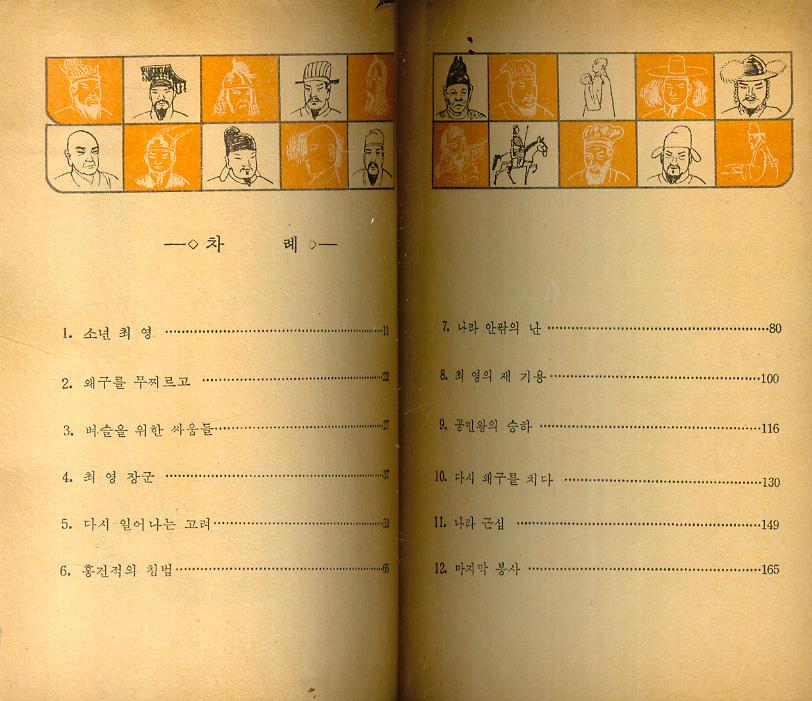 차 례
1. 소년 최 영 11
2. 왜구를 무찌르고 22
3. 벼슬을 위한 싸움들 27
4. 최 영 장군 37
5. 다시 일어나는 고려 53
6. 홍건적의 침범 65
7. 나라 안팎의 난 80
8. 최 영의 재 기용 100
9. 공민왕의 승하 116
10. 다시 왜구를 치다 130
11. 나라 근심 149
12. 마지막 봉사 165